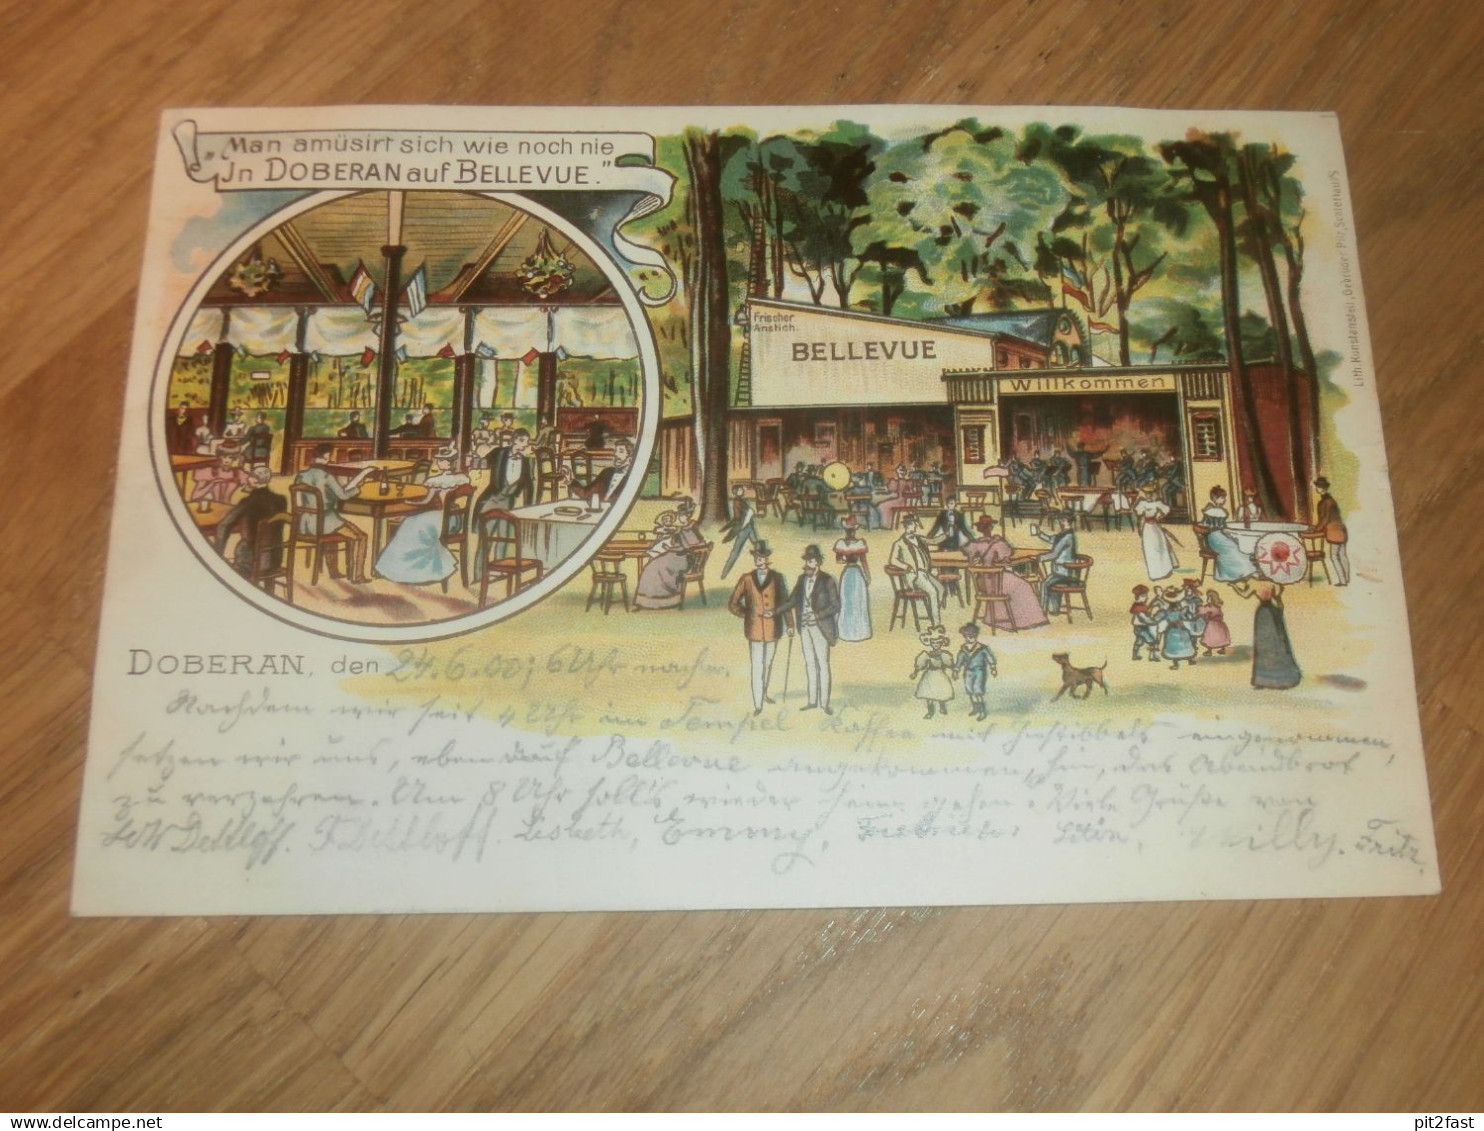 „Man amüsirt sich wie noch nie
Jn DOBERAN auf BELLEVUE.“
Frischer
Anstich.
BELLEVUE
Willkommen
Lith. Kunstanstalt, Gebrüder Pilz, Schlettau i/S
DOBERAN, den 24.6.00; 6 Uhr nachm.
Nachdem wir seit 4 Uhr im Tempel Kaffee mit eingenommen,
setzen wir uns, eben auf Bellevue angekommen, hin, das Abendbrot
zu verzehren. Um 8 Uhr soll's wieder heim gehen. Viele Grüße von
Dettloff. F. Dettloff. Lisbeth, Emmy, Willy. Fritz.
pit2fast